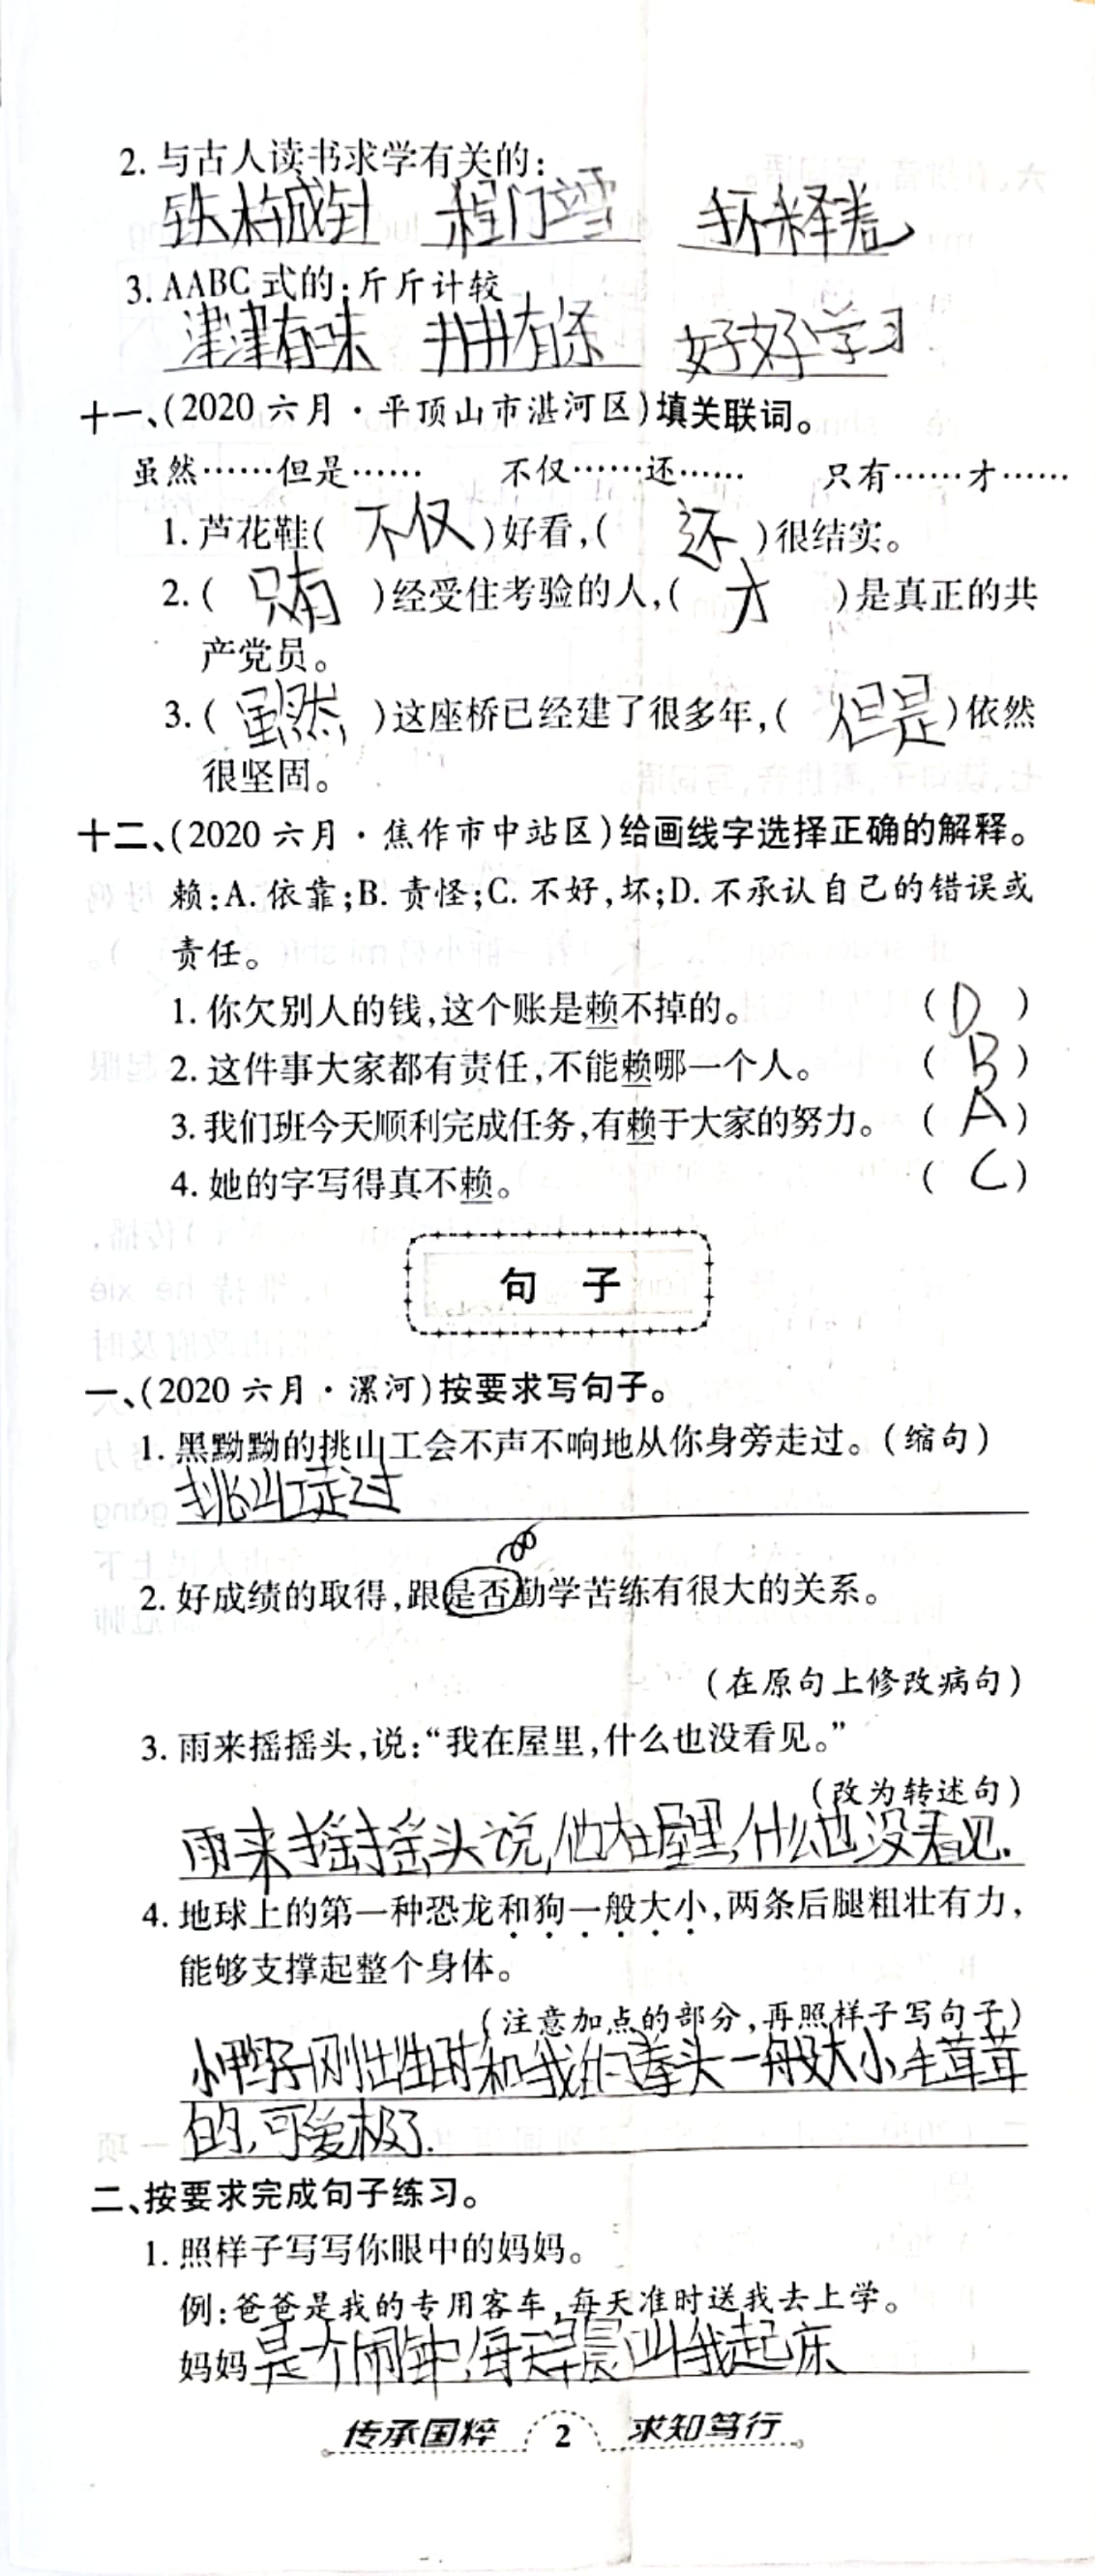 2. 与古人读书求学有关的:
铁杵成针 程门立雪 手不释卷
3. AABC 式的:斤斤计较
津津有味 井井有条 好好学习
十一、(2020 六月·平顶山市湛河区)填关联词。
虽然……但是…… 不仅……还…… 只有……才……
1. 芦花鞋( 不仅 )好看,( 还 )很结实。
2. ( 只有 )经受住考验的人,( 才 )是真正的共
产党员。
3. ( 虽然 )这座桥已经建了很多年,( 但是 )依然
很坚固。
十二、(2020 六月·焦作市中站区)给画线字选择正确的解释。
赖:A. 依靠;B. 责怪;C. 不好,坏;D. 不承认自己的错误或
责任。
1. 你欠别人的钱,这个账是赖不掉的。 ( D )
2. 这件事大家都有责任,不能赖哪一个人。 ( B )
3. 我们班今天顺利完成任务,有赖于大家的努力。 ( A )
4. 她的字写得真不赖。 ( C )
句 子
一、(2020 六月·漯河)按要求写句子。
1. 黑黝黝的挑山工会不声不响地从你身旁走过。(缩句)
挑山工走过
2. 好成绩的取得,跟是否勤学苦练有很大的关系。
(在原句上修改病句)
3. 雨来摇摇头,说:“我在屋里,什么也没看见。”
(改为转述句)
雨来摇摇头说,他在屋里,什么也没看见.
4. 地球上的第一种恐龙和狗一般大小,两条后腿粗壮有力,
能够支撑起整个身体。
(注意加点的部分,再照样子写句子)
小鸭子刚出生时和我的拳头一般大小,毛茸茸
的,可爱极了.
二、按要求完成句子练习。
1. 照样子写写你眼中的妈妈。
例:爸爸是我的专用客车,每天准时送我去上学。
妈妈是个闹钟,每天早晨叫我起床
传承国粹 2 求知笃行